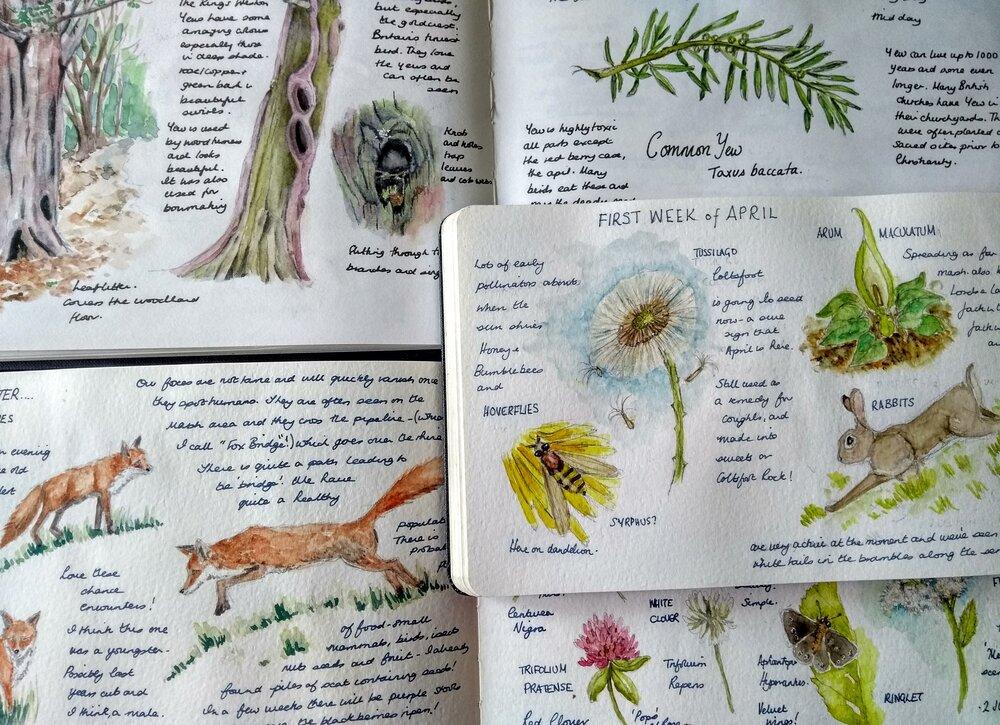 The Kings Weston
Yews have some
amazing colours
especially those
in deep shade.
rose/copper
green bark in
beautiful
swirls.
Yew is used
by wood turners
and looks
beautiful.
It was also
used for
bowmaking
Leaf litter.
Covers the woodland
floor.
but especially
the goldcrest.
Britain's tiniest
bird. They love
the Yews and
can often be
seen
Knob
and holes
trap
leaves
and cobwebs
Putting through t
branches and sing
Mid day
Yew can live up to 1000
years and some even
longer. Many British
churches have Yews in
their churchyards. Th
were often planted o
Sacred sites prior to
Christianity.
Yew is highly toxic
all parts except
the red berry case,
the aril. Many
birds eat these and
Common Yew
Taxus baccata.
FIRST WEEK of APRIL
Lots of early
pollinators about
when the
sun shines
Honey +
Bumblebees
and
HOVERFLIES
SYRPHUS?
Here on dandelion.
TUSSILAGO
Coltsfoot
is going to seed
now - a sure
sign that
April is here.
Still used as
a remedy for
coughs, and
made into
sweets or
Coltsfoot Rock!
ARUM MACULATUM
Spreading as far
marsh. also k
Lords + La
Jack in t
Jack
RABBITS
are very active at the moment and we've seen
white tails in the brambles along the
TER....
Our foxes are not tame and will quickly vanish once
they spot humans. They are often seen on the
Marsh area and they cross the pipeline - (which
I call "Fox Bridge"!) which goes over the rhine
There is quite a path leading to
the 'bridge'! We have
quite a healthy
populat
There is
probab
of food - small
mammals, birds, insect
nuts seeds and fruit - I already
found piles of scat containing seeds!
In a few weeks there will be purple
the blackberries ripen!
n evening
Love these
chance
encounters!
I think this one
was a youngster.
Possibly last
years cub and
I think, a male.
Centurea
Nigra
TRIFOLIUM
PRATENSE
Red Clover
WHITE
CLOVER
Trifolium
Repens
Simple.
Aphantopus
Hyperantus.
Velvet
wings!
RINGLET